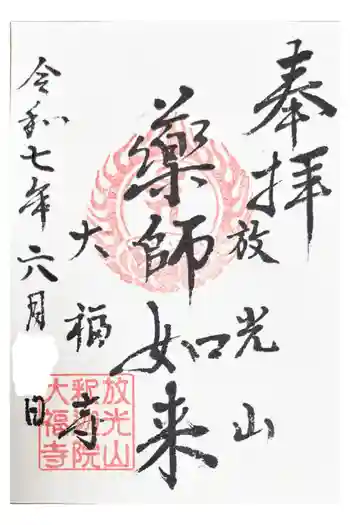 奉拝
放光山
藥師如来
大福寺
令和七年六月日
放光山
釈迦院
大福寺